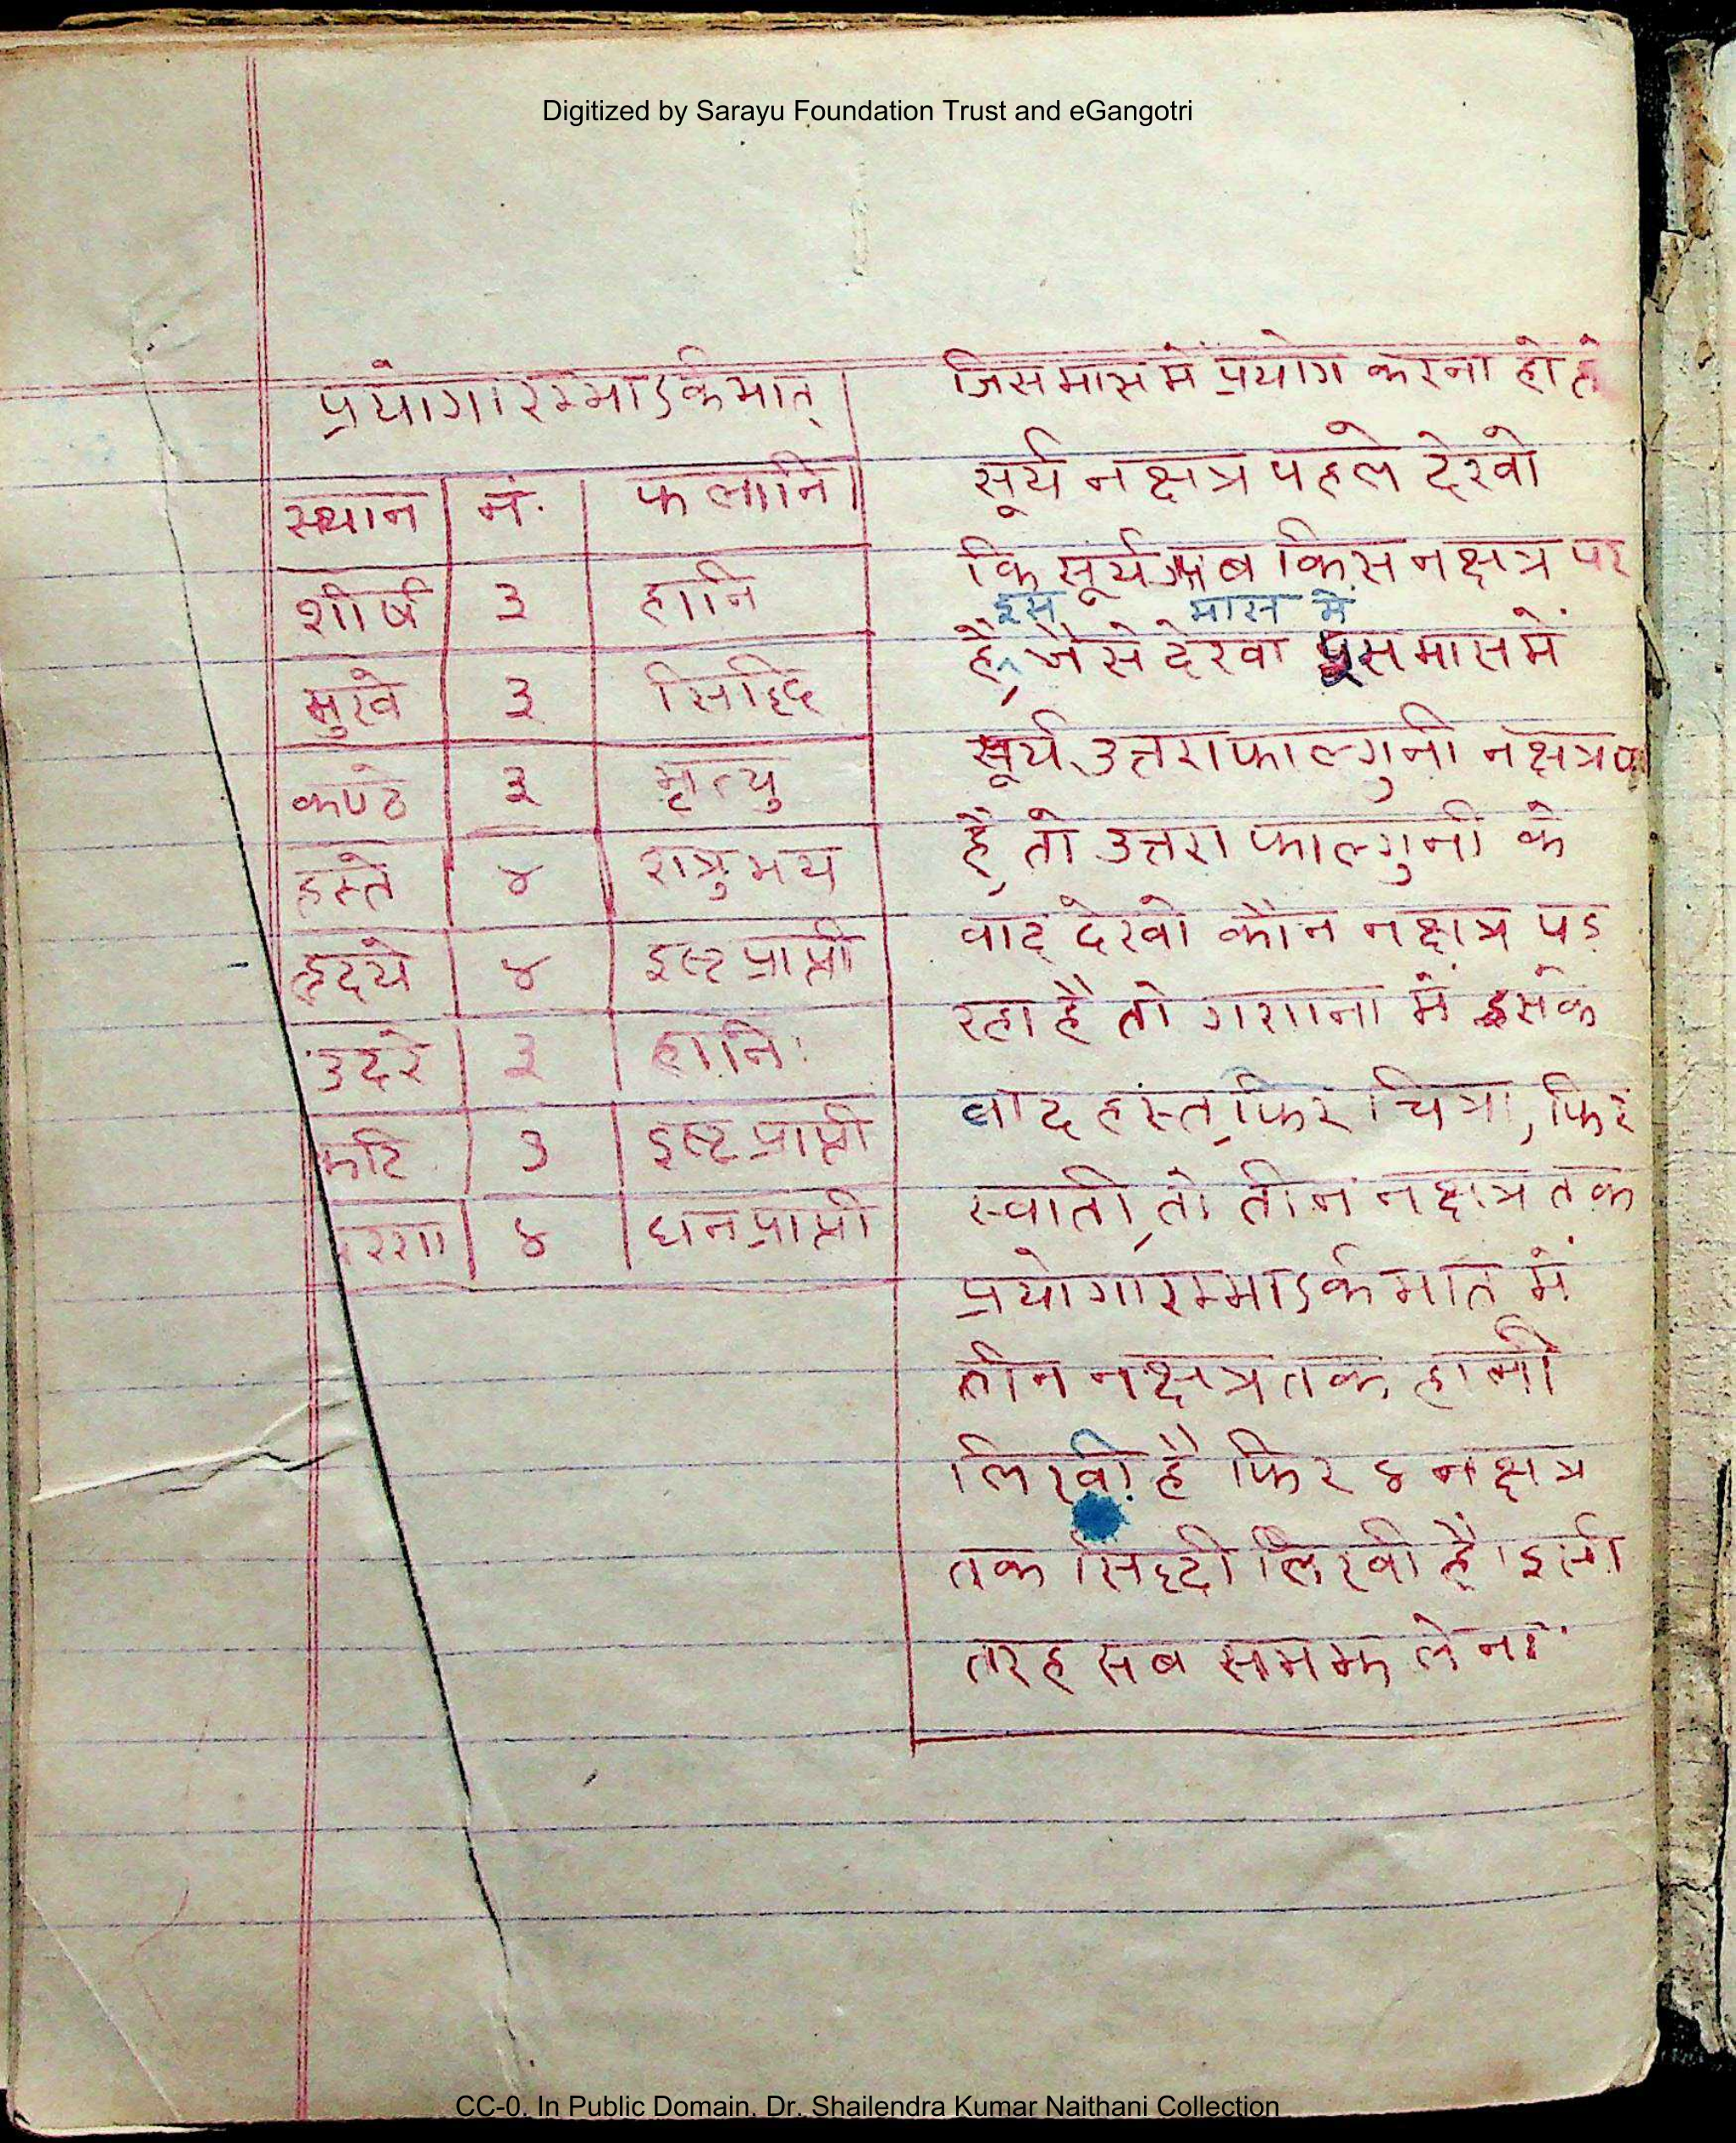 Digitized by Sarayu Foundation Trust and eGangotri
प्रयोगारम्भाऽर्कभात्
स्थान नं. फलानि
शीर्ष ३ हानि
मुखे ३ सिद्धि
कण्ठे ३ मृत्यु
हस्ते ४ शत्रुभय
हृदये ४ इष्टप्राप्ती
उदरे ३ हानि
कटि ३ इष्टप्राप्ती
रण ४ धनप्राप्ती
जिस मास में प्रयोग करना हो तो
सूर्य नक्षत्र पहले देखो
कि सूर्य अब किस नक्षत्र पर
इस मास में
है, जैसे देखा पूस मास में
सूर्य उत्तराफाल्गुनी नक्षत्र प
है, तो उत्तरा फाल्गुनी के
वाद देखो कौन नक्षत्र पड़
रहा है तो गणना में इसके
वाद हस्त, फिर चित्रा, फिर
स्वाती, तो तीन नक्षत्र तक
प्रयोगारम्भाऽर्कभात में
तीन नक्षत्र तक हानी
लिखी है फिर ४ नक्षत्र
तक सिद्दी लिखी है। इसी
तरह सब समझ लेना
CC-0. In Public Domain. Dr. Shailendra Kumar Naithani Collection